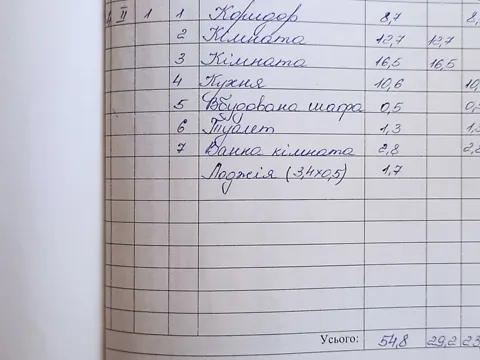 II 1 1 Коридор 8,7 8,
2 Кімната 12,7 12,7
3 Кімната 16,5 16,5
4 Кухня 10,6 10,
5 Вбудована шафа 0,5 0,
6 Туалет 1,3 1,3
7 Ванна кімната 2,8 2,8
Лоджія (3,4х0,5) 1,7
Усього: 54,8 29,2 23,